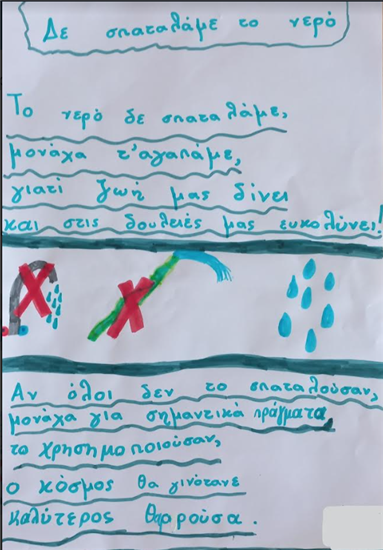 Δε σπαταλάμε το νερό
Το νερό δε σπαταλάμε,
μονάχα τ'αγαπάμε,
γιατί ζωή μας δίνει
και στις δουλειές μας ευκολύνει!
Αν όλοι δεν το σπαταλούσαν,
μονάχα για σημαντικά πράγματα
το χρησημοποιούσαν,
ο κόσμος θα γινότανε
καλύτερος θαρρούσα.